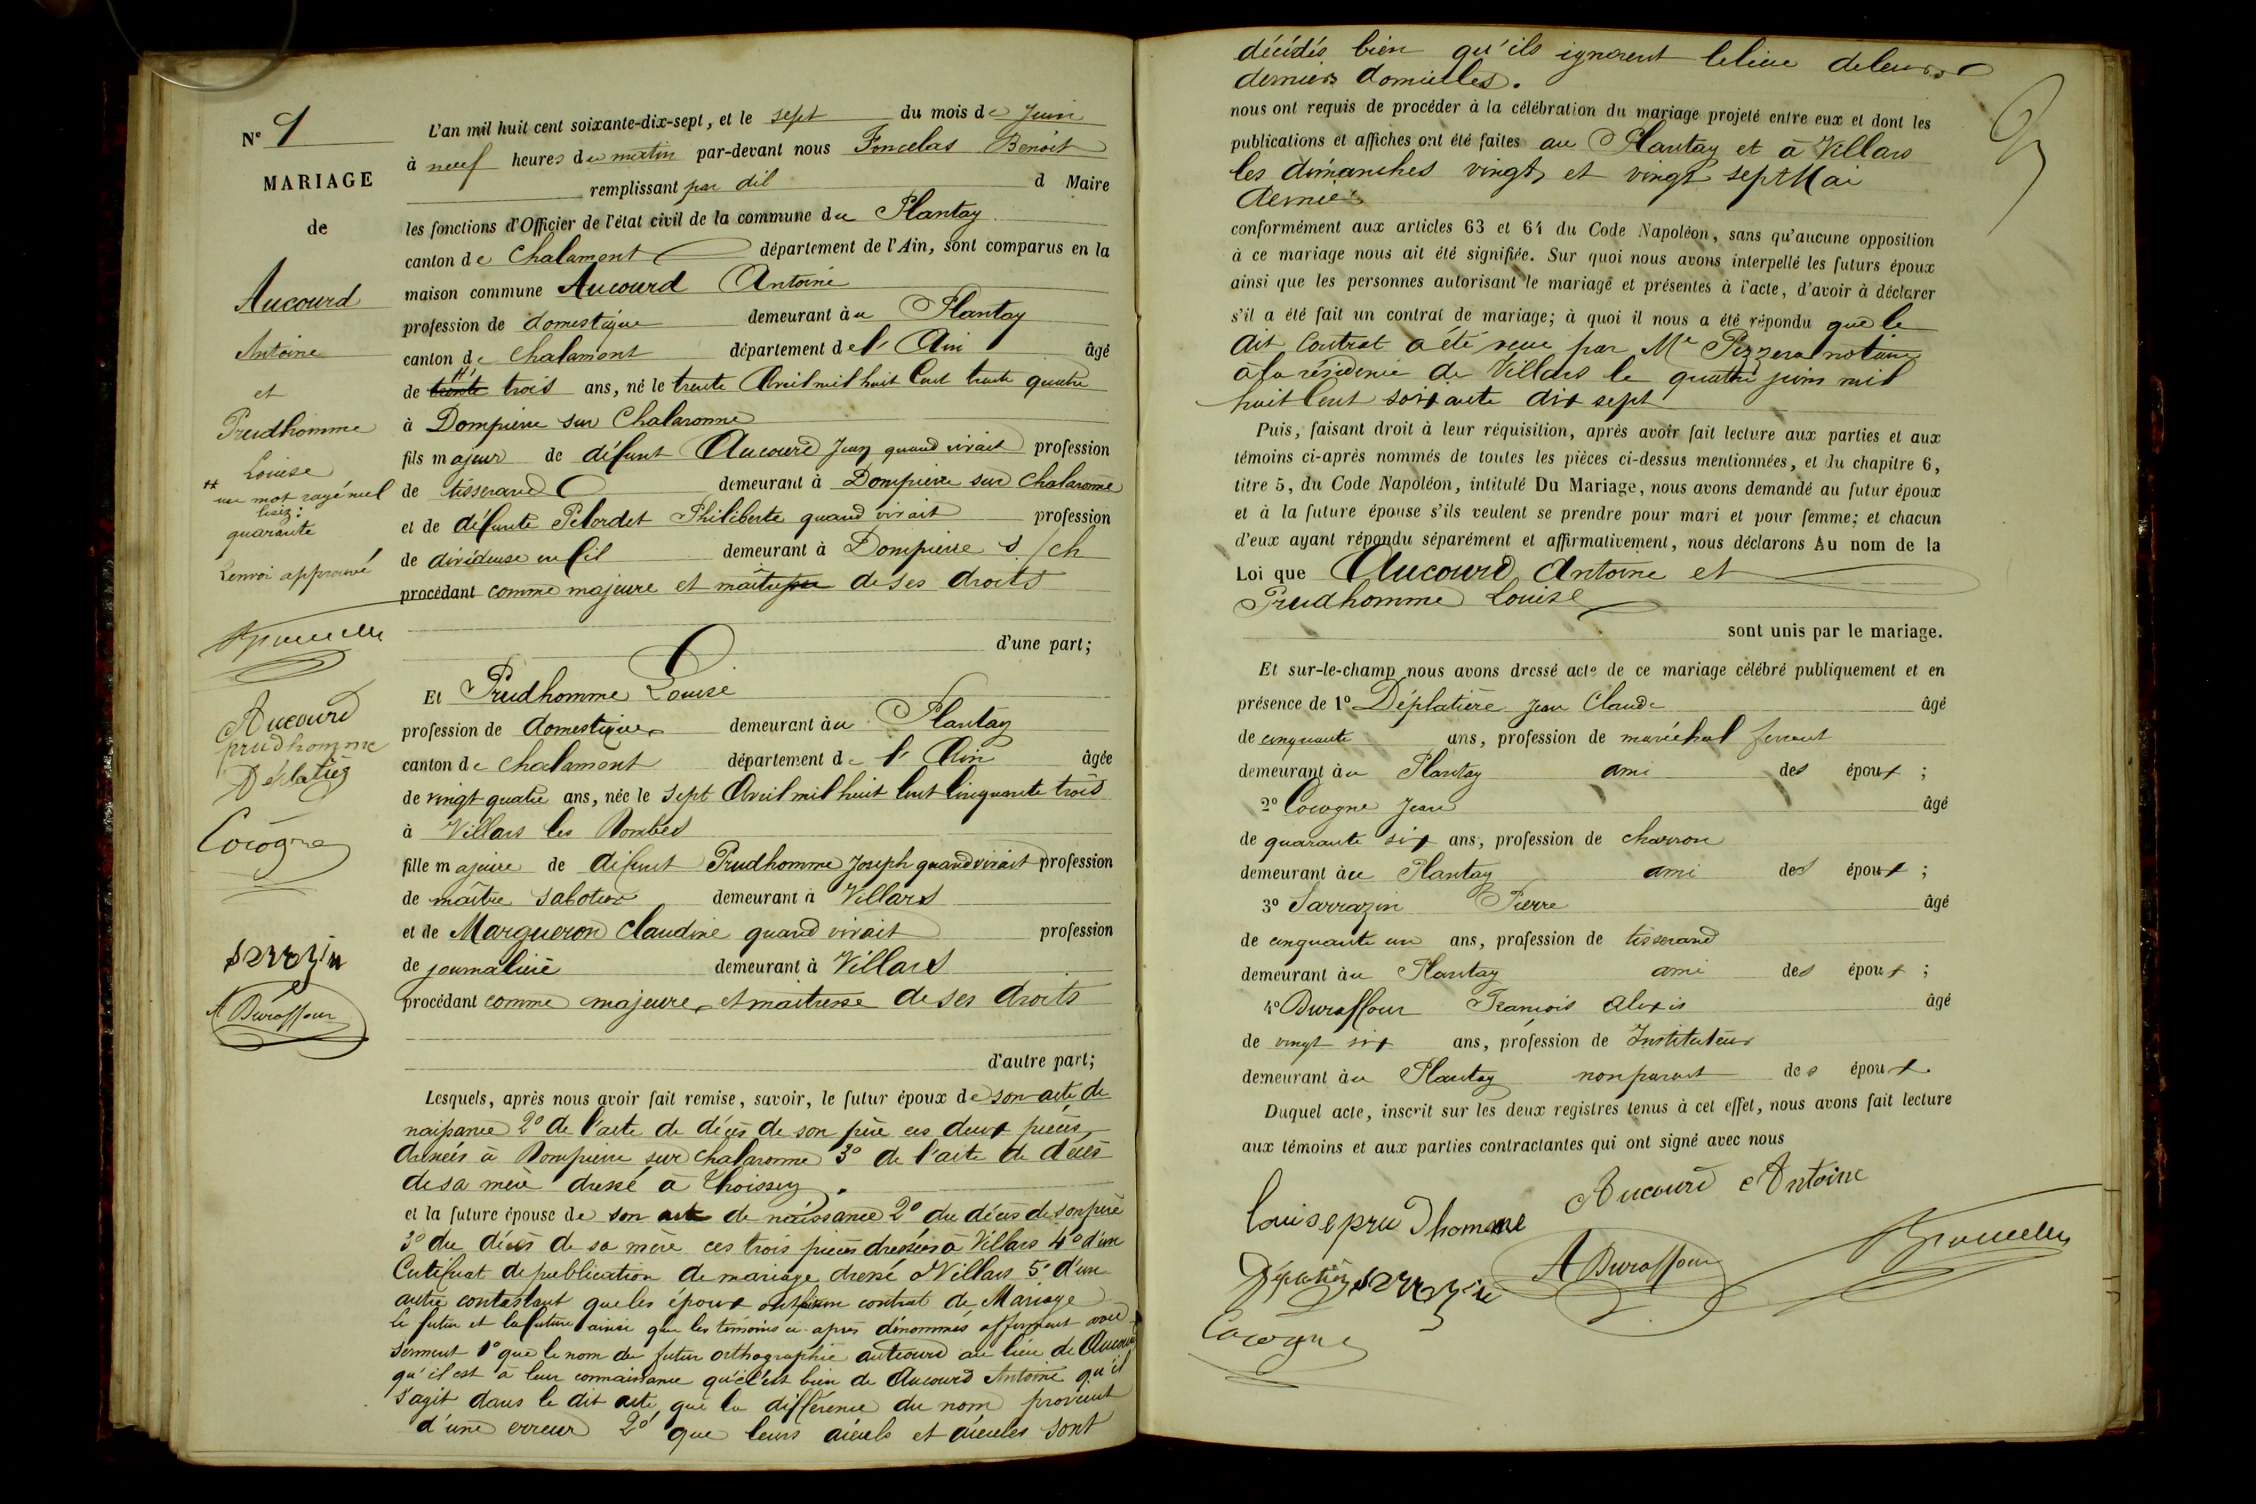 N° 9
MARIAGE
de
Aucourd
Antoine
et
Prudhomme
Louise
un mot rayé nul
lisez :
quarante
Renvoi approuvé
Aucourd
prudhomme
Cocogne
sarrazin
A Duraffour
L'an mil huit cent soixante-dix-sept, et le sept du mois de Juin
à neuf heures du matin par-devant nous Foncelas Benoit
remplissant par dél d Maire
les fonctions d'Officier de l'état civil de la commune du Plantay
canton de Chalamont département de l'Ain, sont comparus en la
maison commune Aucourd Antoine
profession de domestique demeurant au Plantay
canton de Chalamont département de l'Ain âgé
de trente trois ans, né le trente Avril mil huit Cent trente quatre
à Dompierre sur Chalaronne
fils majeur de défunt Aucourd Jean quand vivait profession
de tisserand demeurant à Dompierre sur Chalaronne
et de défunte Pelordet Philiberte quand vivait profession
de dévideuse en fil demeurant à Dompierre s/ch
procédant comme majeure et maître de ses droits
d'une part;
Et Prudhomme Louise
profession de domestique demeurant au Plantay
canton de Chalamont département de l'Ain âgée
de vingt quatre ans, née le sept Avril mil huit Cent Cinquante trois
à Villars les Dombes
fille majeure de défunt Prudhomme Joseph quand vivait profession
de maître sabotier demeurant à Villars
et de Margueron Claudine quand vivait profession
de journalière demeurant à Villars
procédant comme majeure et maitresse de ses droits
d'autre part;
Lesquels, après nous avoir fait remise, savoir, le futur époux de son acte de
naissance 2° de l'acte de décès de son père ces deux pièces
dressées à Dompierre sur Chalaronne 3° de l'acte de décès
de sa mère dressé à Thoissey.
et la future épouse de son acte de naissance 2° du décès de son père
3° du décès de sa mère ces trois pièces dressées à Villars 4° d'un
Certificat de publication de mariage dressé à Villars 5° d'un
autre contestant que les époux ont contrat de Mariage
Le futur et la future ainsi que les témoins ci-après dénommés afferment avec
serment 1° que le nom du futur orthographié autcourd au lieu de Aucourd
qu'il est à leur connaissance que c'est bien de Aucourd Antoine qu'il
s'agit dans le dit acte que la différence du nom provient
d'une erreur 2° que leurs aieuls et aieules sont
décédés bien qu'ils ignorent le lieu de leurs
derniers domiciles.
nous ont requis de procéder à la célébration du mariage projeté entre eux et dont les
publications et affiches ont été faites au Plantay et à Villars
les dimanches vingt et vingt sept Mai
dernier
conformément aux articles 63 et 64 du Code Napoléon, sans qu'aucune opposition
à ce mariage nous ait été signifiée. Sur quoi nous avons interpellé les futurs époux
ainsi que les personnes autorisant le mariage et présentes à l'acte, d'avoir à déclarer
s'il a été fait un contrat de mariage; à quoi il nous a été répondu que le
dit Contrat a été reçu par Me Pizzera notaire
à la résidence de Villars le quatre juin mil
huit Cent soixante dix sept
Puis, faisant droit à leur réquisition, après avoir fait lecture aux parties et aux
témoins ci-après nommés de toutes les pièces ci-dessus mentionnées, et du chapitre 6,
titre 5, du Code Napoléon, intitulé Du Mariage, nous avons demandé au futur époux
et à la future épouse s'ils veulent se prendre pour mari et pour femme; et chacun
d'eux ayant répondu séparément et affirmativement, nous déclarons Au nom de la
Loi que Aucourd Antoine et
Prudhomme Louise
sont unis par le mariage.
Et sur-le-champ nous avons dressé acte de ce mariage célébré publiquement et en
présence de 1° Déplatière Jean Claude âgé
de cinquante ans, profession de maréchal ferrant
demeurant au Plantay ami des époux ;
2° Cocogne Jean âgé
de quarante six ans, profession de charron
demeurant au Plantay ami des époux ;
3° Sarrazin Pierre âgé
de cinquante un ans, profession de tisserand
demeurant au Plantay ami des époux ;
4° Duraffour François Alexis âgé
de vingt six ans, profession de Instituteur
demeurant au Plantay non parent des époux.
Duquel acte, inscrit sur les deux registres tenus à cet effet, nous avons fait lecture
aux témoins et aux parties contractantes qui ont signé avec nous
louise prudhomme Aucourd Antoine
sarrazin A Duraffour
Cocogne